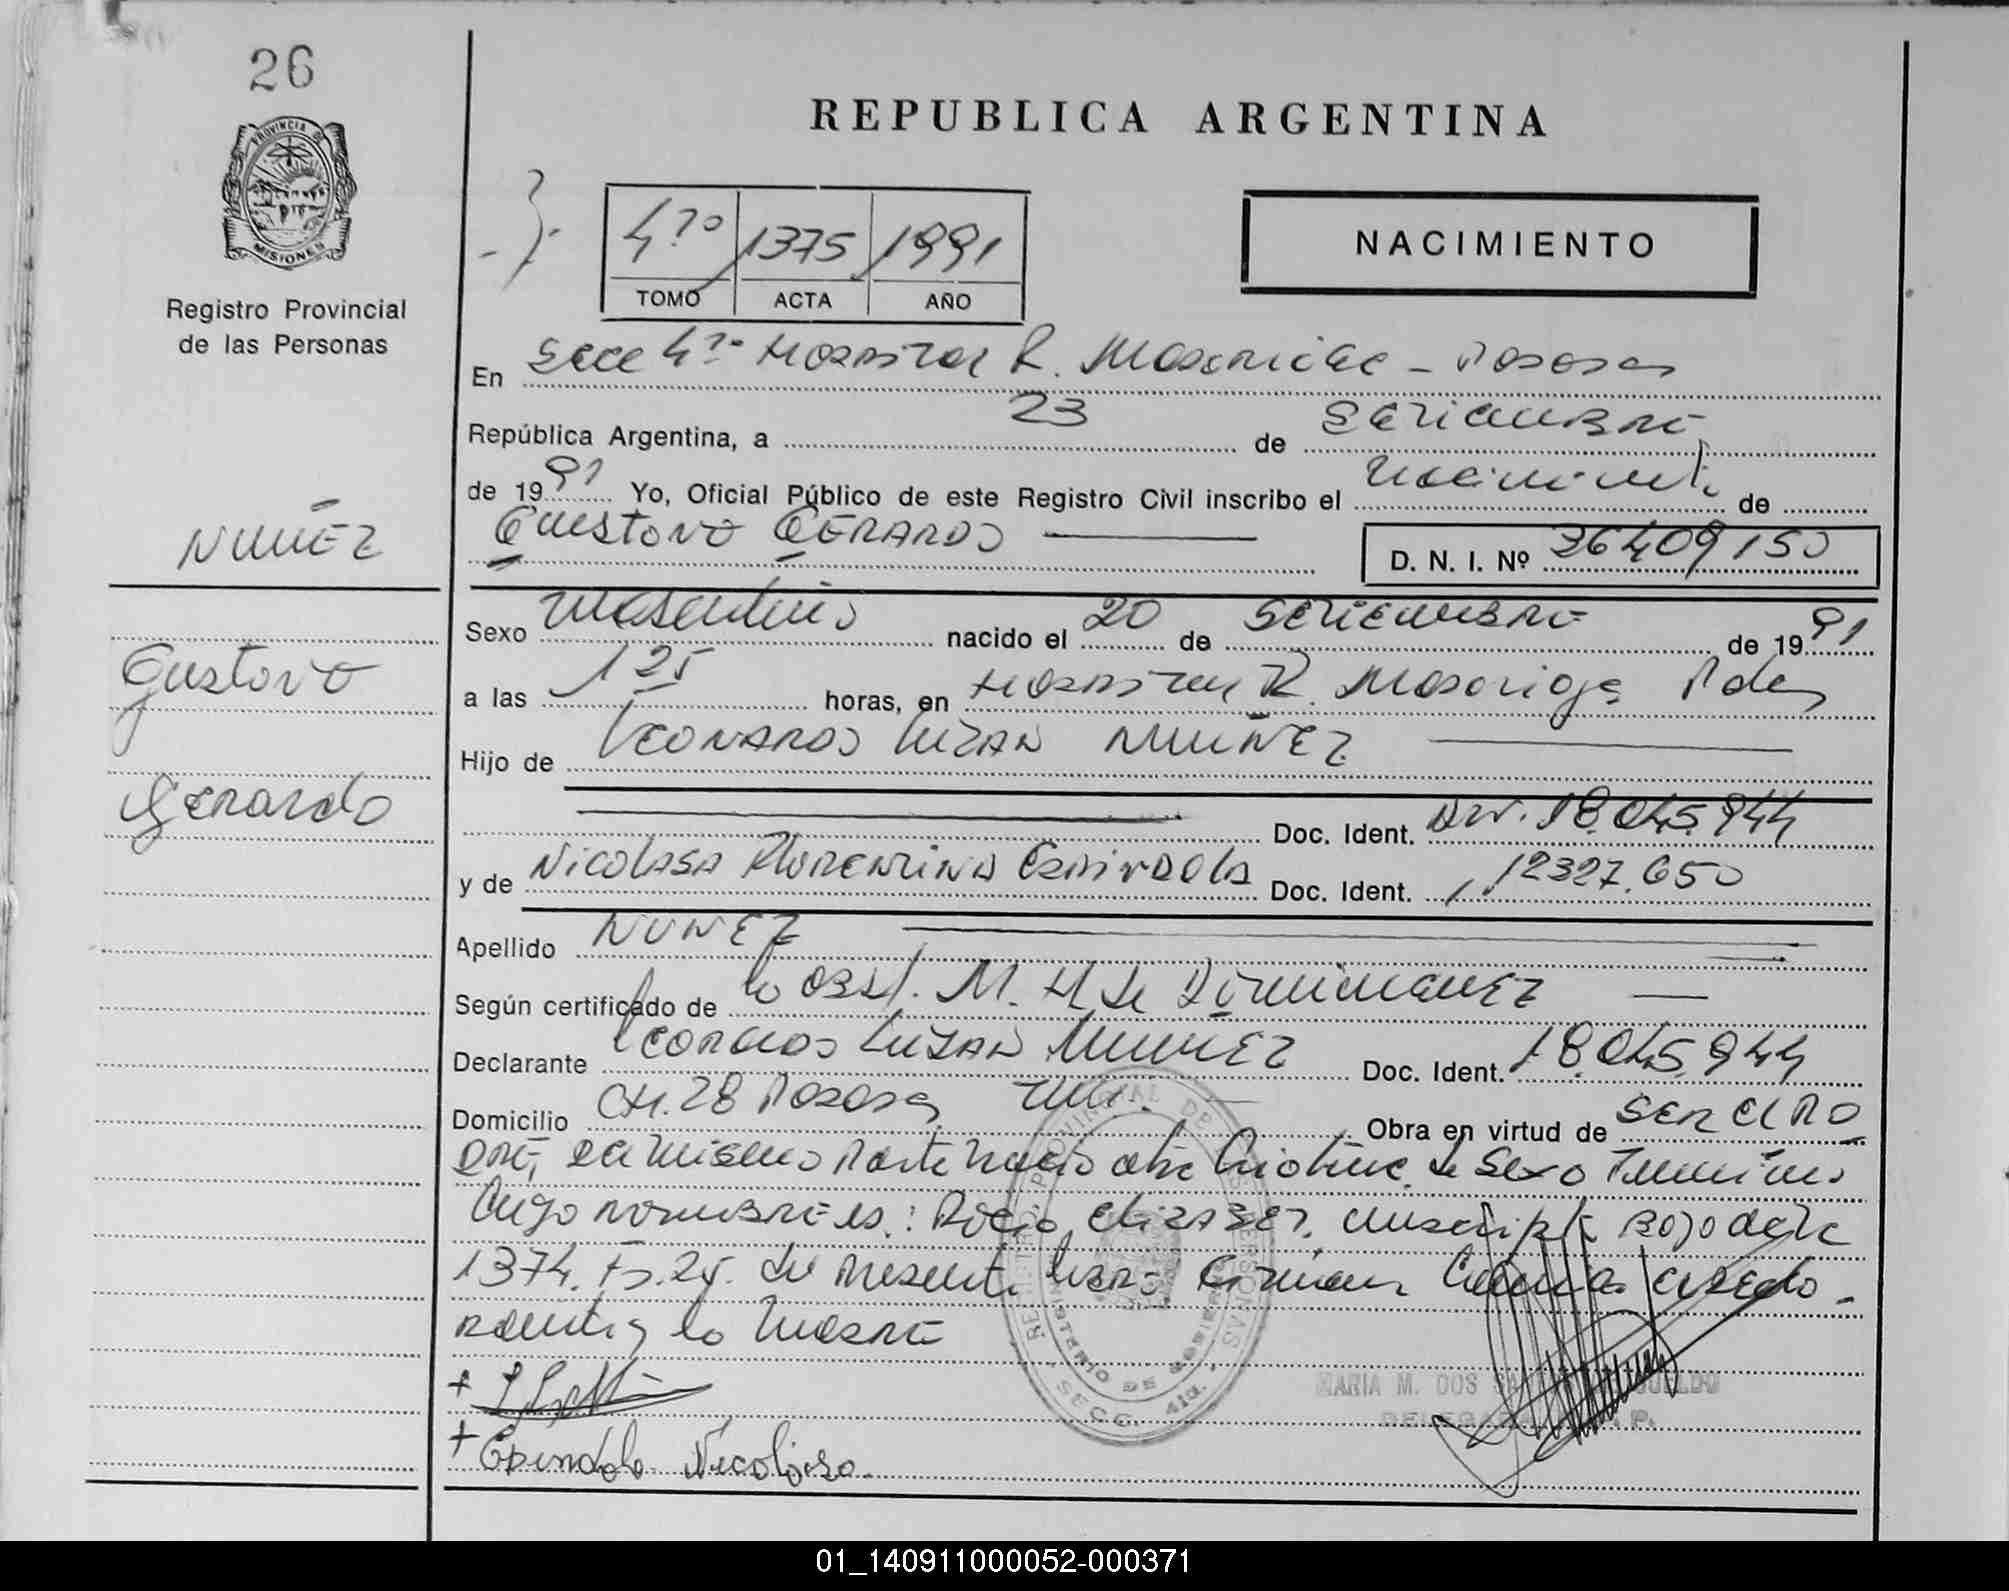 26
PROVINCIA DE
MISIONES
Registro Provincial
de las Personas
REPUBLICA ARGENTINA
4º 1375 1991
TOMO ACTA AÑO
NACIMIENTO
En Secc 4º Hospital R. - Posadas
República Argentina, a 23 de Setiembre
de 1991 Yo, Oficial Público de este Registro Civil inscribo el nacimiento de
Gustavo Gerardo
D. N. I. Nº 36409150
NUÑEZ
Gustavo
Gerardo
Sexo Masculino nacido el 20 de Setiembre de 1991
a las 125 horas, en Hospital R. Madariaga Pdas
Hijo de Leonardo Luzan NUÑEZ
Doc. Ident. DNI. 18.045.944
y de Nicolasa Florentina Espindola Doc. Ident. 12327.650
Apellido NUÑEZ
Según certificado de la Obst. M. H de Dominguez
Declarante Leonardo Luzan Nuñez Doc. Ident. 18.045.944
Domicilio CH. 28 Posadas Obra en virtud de ser el PA
DRE, del mismo parto nació otra criatura de sexo femenino
cuyo nombre es: Rocio Elizabet, inscripta bajo acta
1374. Fo. 25. del presente libro
la Madre
+
+ Espindola Nicolasa.
REGISTRO PROVINCIAL DE LAS PERSONAS
MINISTERIO DE
SECC. 4ta.
MARIA M. DOS
01_140911000052-000371